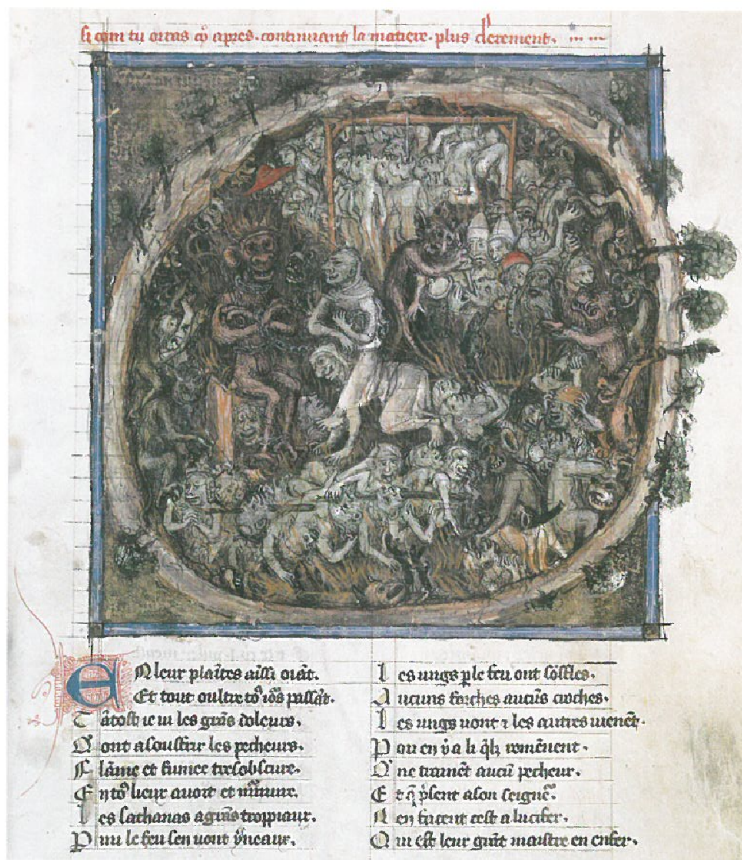 si com tu orras cy apres. continuant la matiere. plus clerement.
En leur plaītes aīssi oiāt.
Et tout oultre toꝰ iours passāt.
Tātost ie vi les grās doleurs.
Qont a souffrir les pecheurs.
Flāme et fumee tresobscure.
En toꝰ lieux auoit et
les sathanas a grās troppiaux.
Pmi le feu sen vont
les ungs ple feu ont
Aucuns forches aucūs croches.
les ungs vont ⁊ les autres vienēt.
Pou en y a li qlz remēnent.
Qne trainēt aucū pecheur.
Et qlz psent a son seigneʳ.
en facent cest a lucifer.
Qui est leur grāt maistre en enfer.